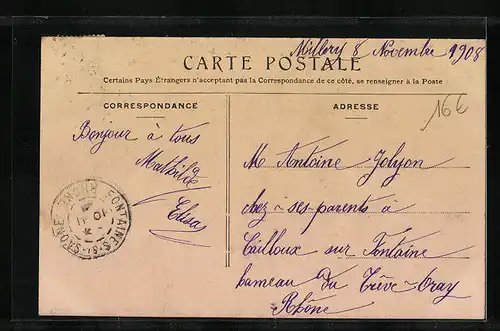 Millery 8 Novembre 1908
CARTE POSTALE
Certains Pays Étrangers n'acceptant pas la Correspondance de ce côté, se renseigner à la Poste
CORRESPONDANCE
ADRESSE
16€
Bonjour à tous
Mathilde
Elisa
M Antoine Jolyon
chez-ses-parents à
Cailloux sur Fontaine
hameau du Trêve-Oray
Rhône
FONTAINES-S-SAONE RHONE
10 11